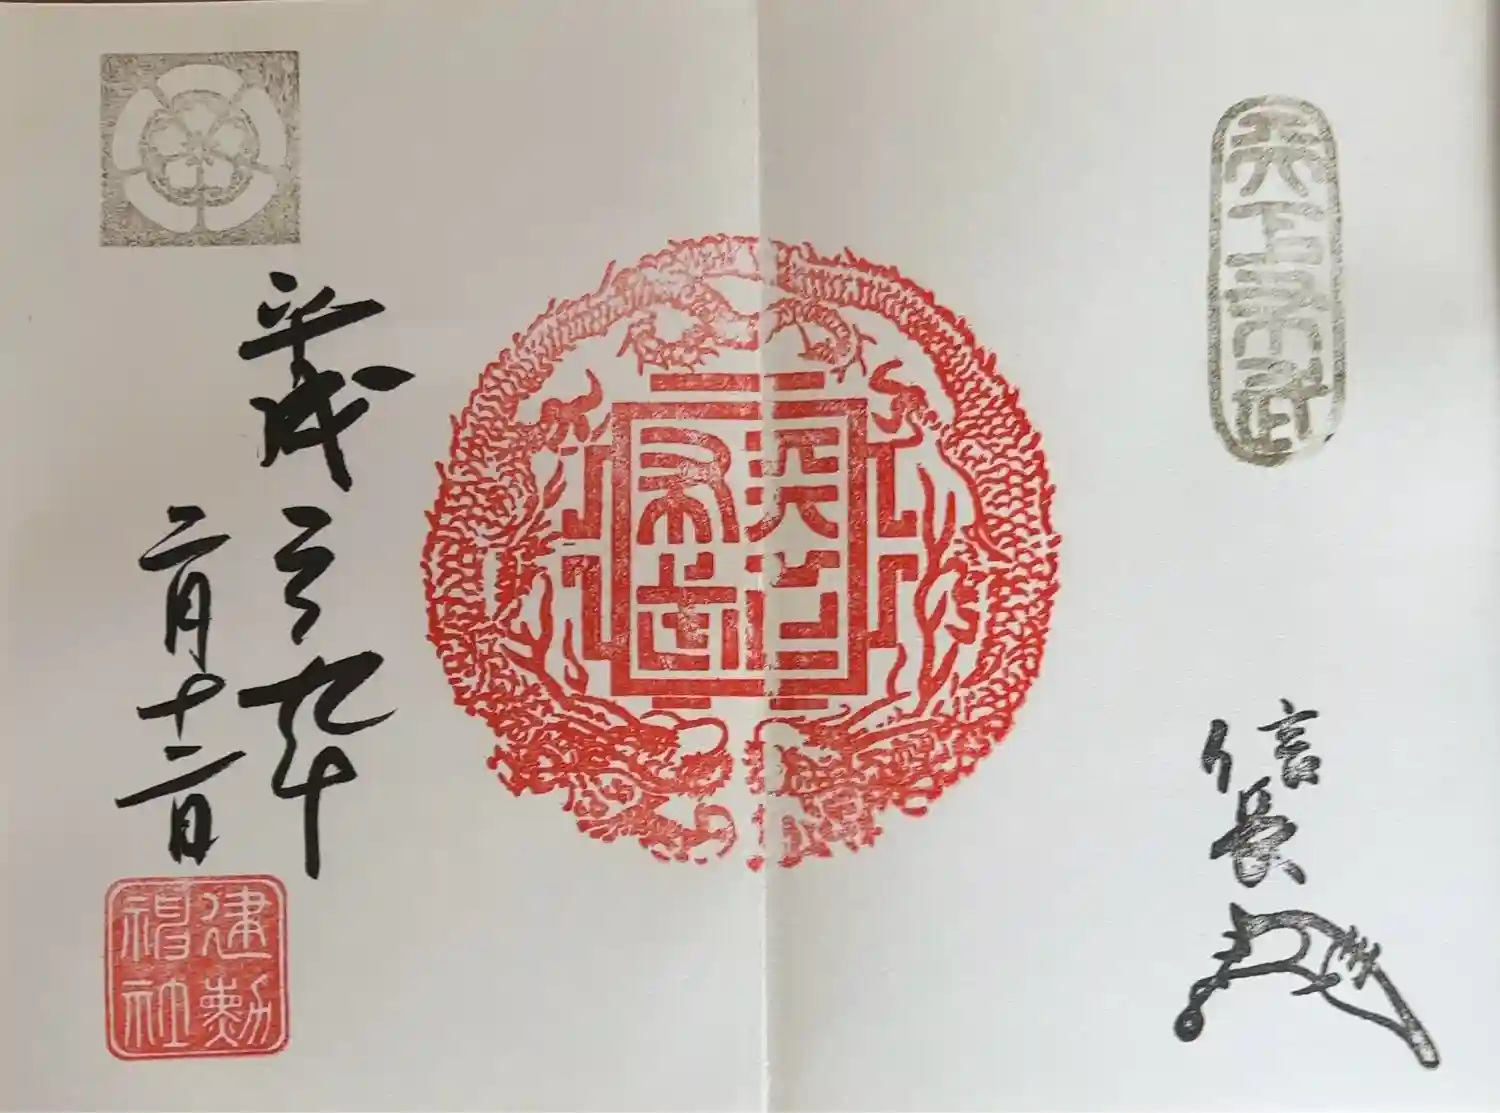 天下布武
信長
天下布武
平成二十九年
二月十二日
建勲神社